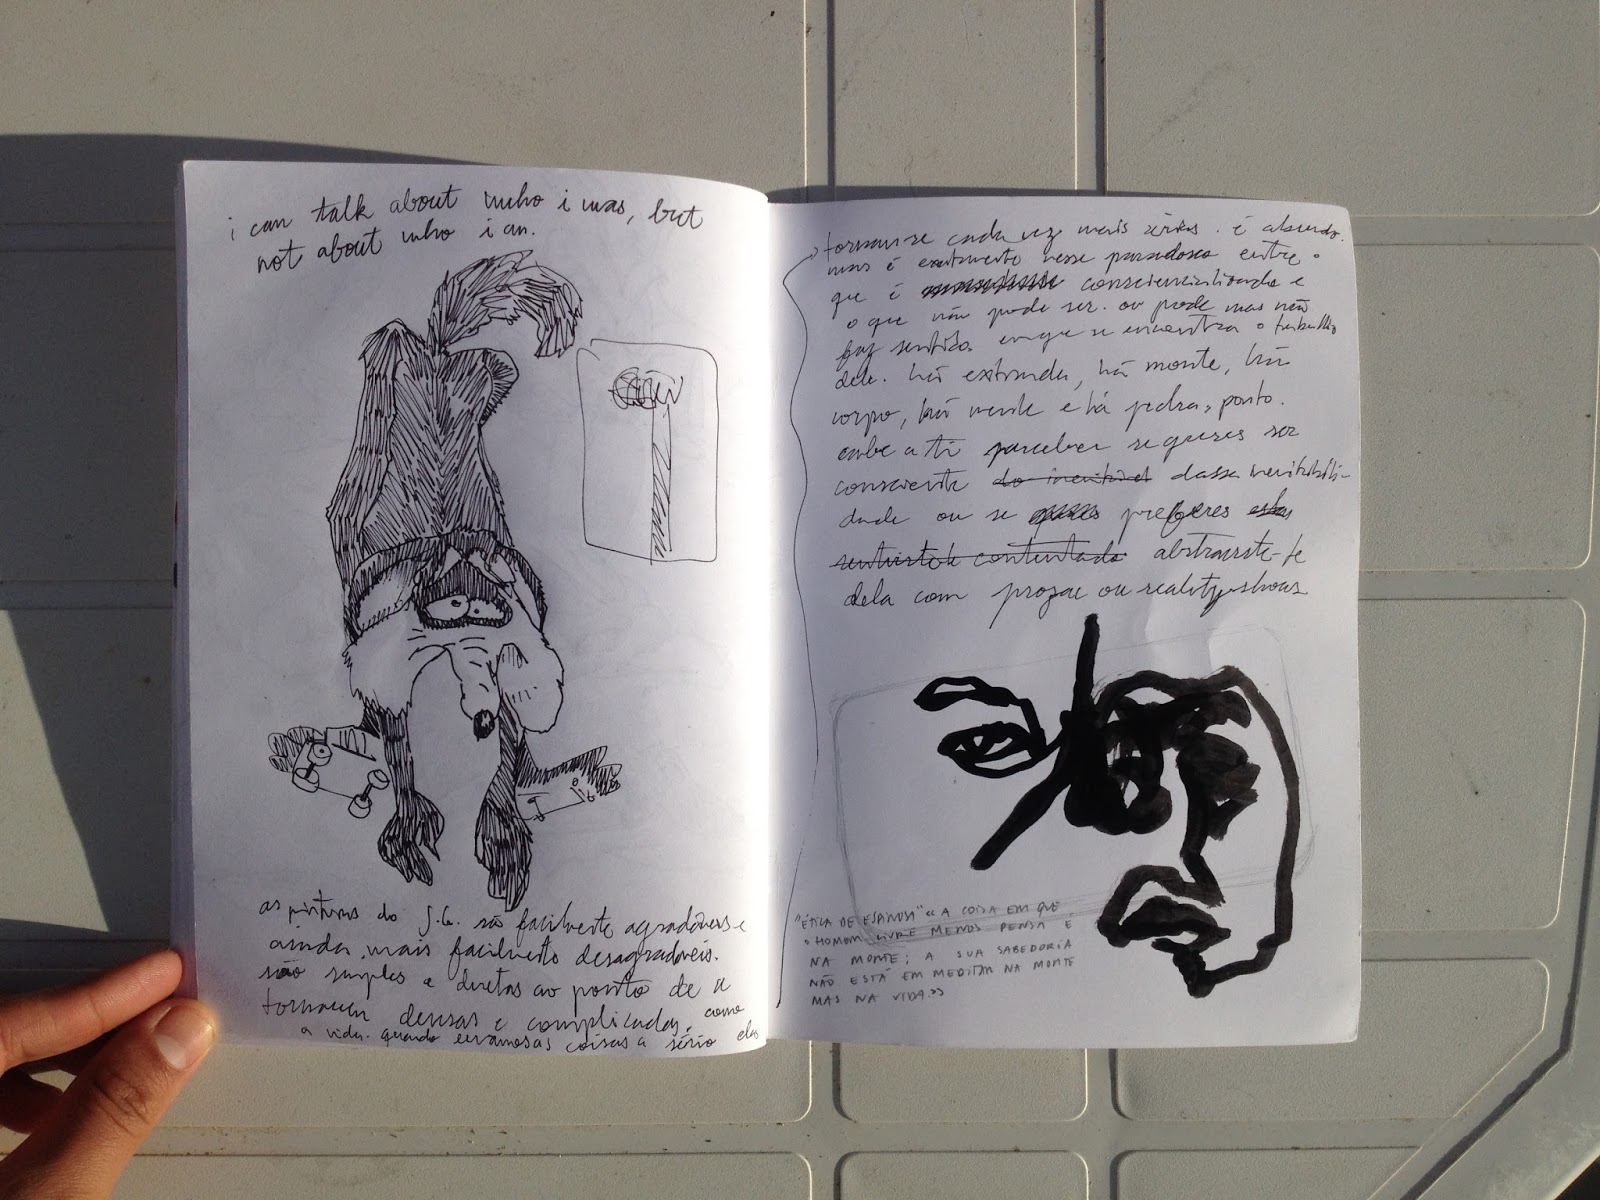 i can talk about who i was, but
not about who i am.
as pinturas do J.G. são facilmente agradáveis e
ainda mais facilmente desagradáveis.
são simples e diretas ao ponto de se
tornarem densas e complicadas, como
a vida. quando levamos as coisas a sério elas
tornam-se cada vez mais sérias. é absurdo.
mas é exatamente nesse paradoxo entre o
que é consciencializado e
o que não pode ser. ou pode mas não
faz sentido. em que se encontra o trabalho
dele. há estrada, há monte, há
corpo, há mente e há pedra, ponto.
cabe a ti perceber se queres ser
consciente do inevitável dessa inevitabili-
dade ou se queres preferes
sentiste-te contentado abstraíste-te
dela com prozac ou reality shows
"ÉTICA DE ESPINOSA" << A COISA EM QUE
O HOMEM LIVRE MENOS PENSA É
NA MORTE; A SUA SABEDORIA
NÃO ESTÁ EM MEDITAR NA MORTE
MAS NA VIDA.>>